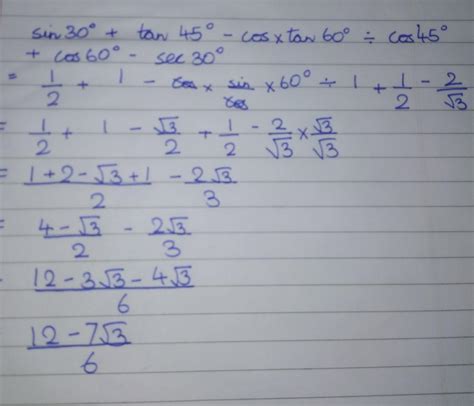 sin 30° + tan 45° - cos x tan 60° ÷ cos 45°
+ cos 60° - sec 30°
= 1/2 + 1 - cos x sin/cos x 60° ÷ 1 + 1/2 - 2/√3
= 1/2 + 1 - √3/2 + 1/2 - 2/√3 x √3/√3
= (1+2-√3+1)/2 - 2√3/3
= (4-√3)/2 - 2√3/3
(12-3√3-4√3)/6
(12-7√3)/6